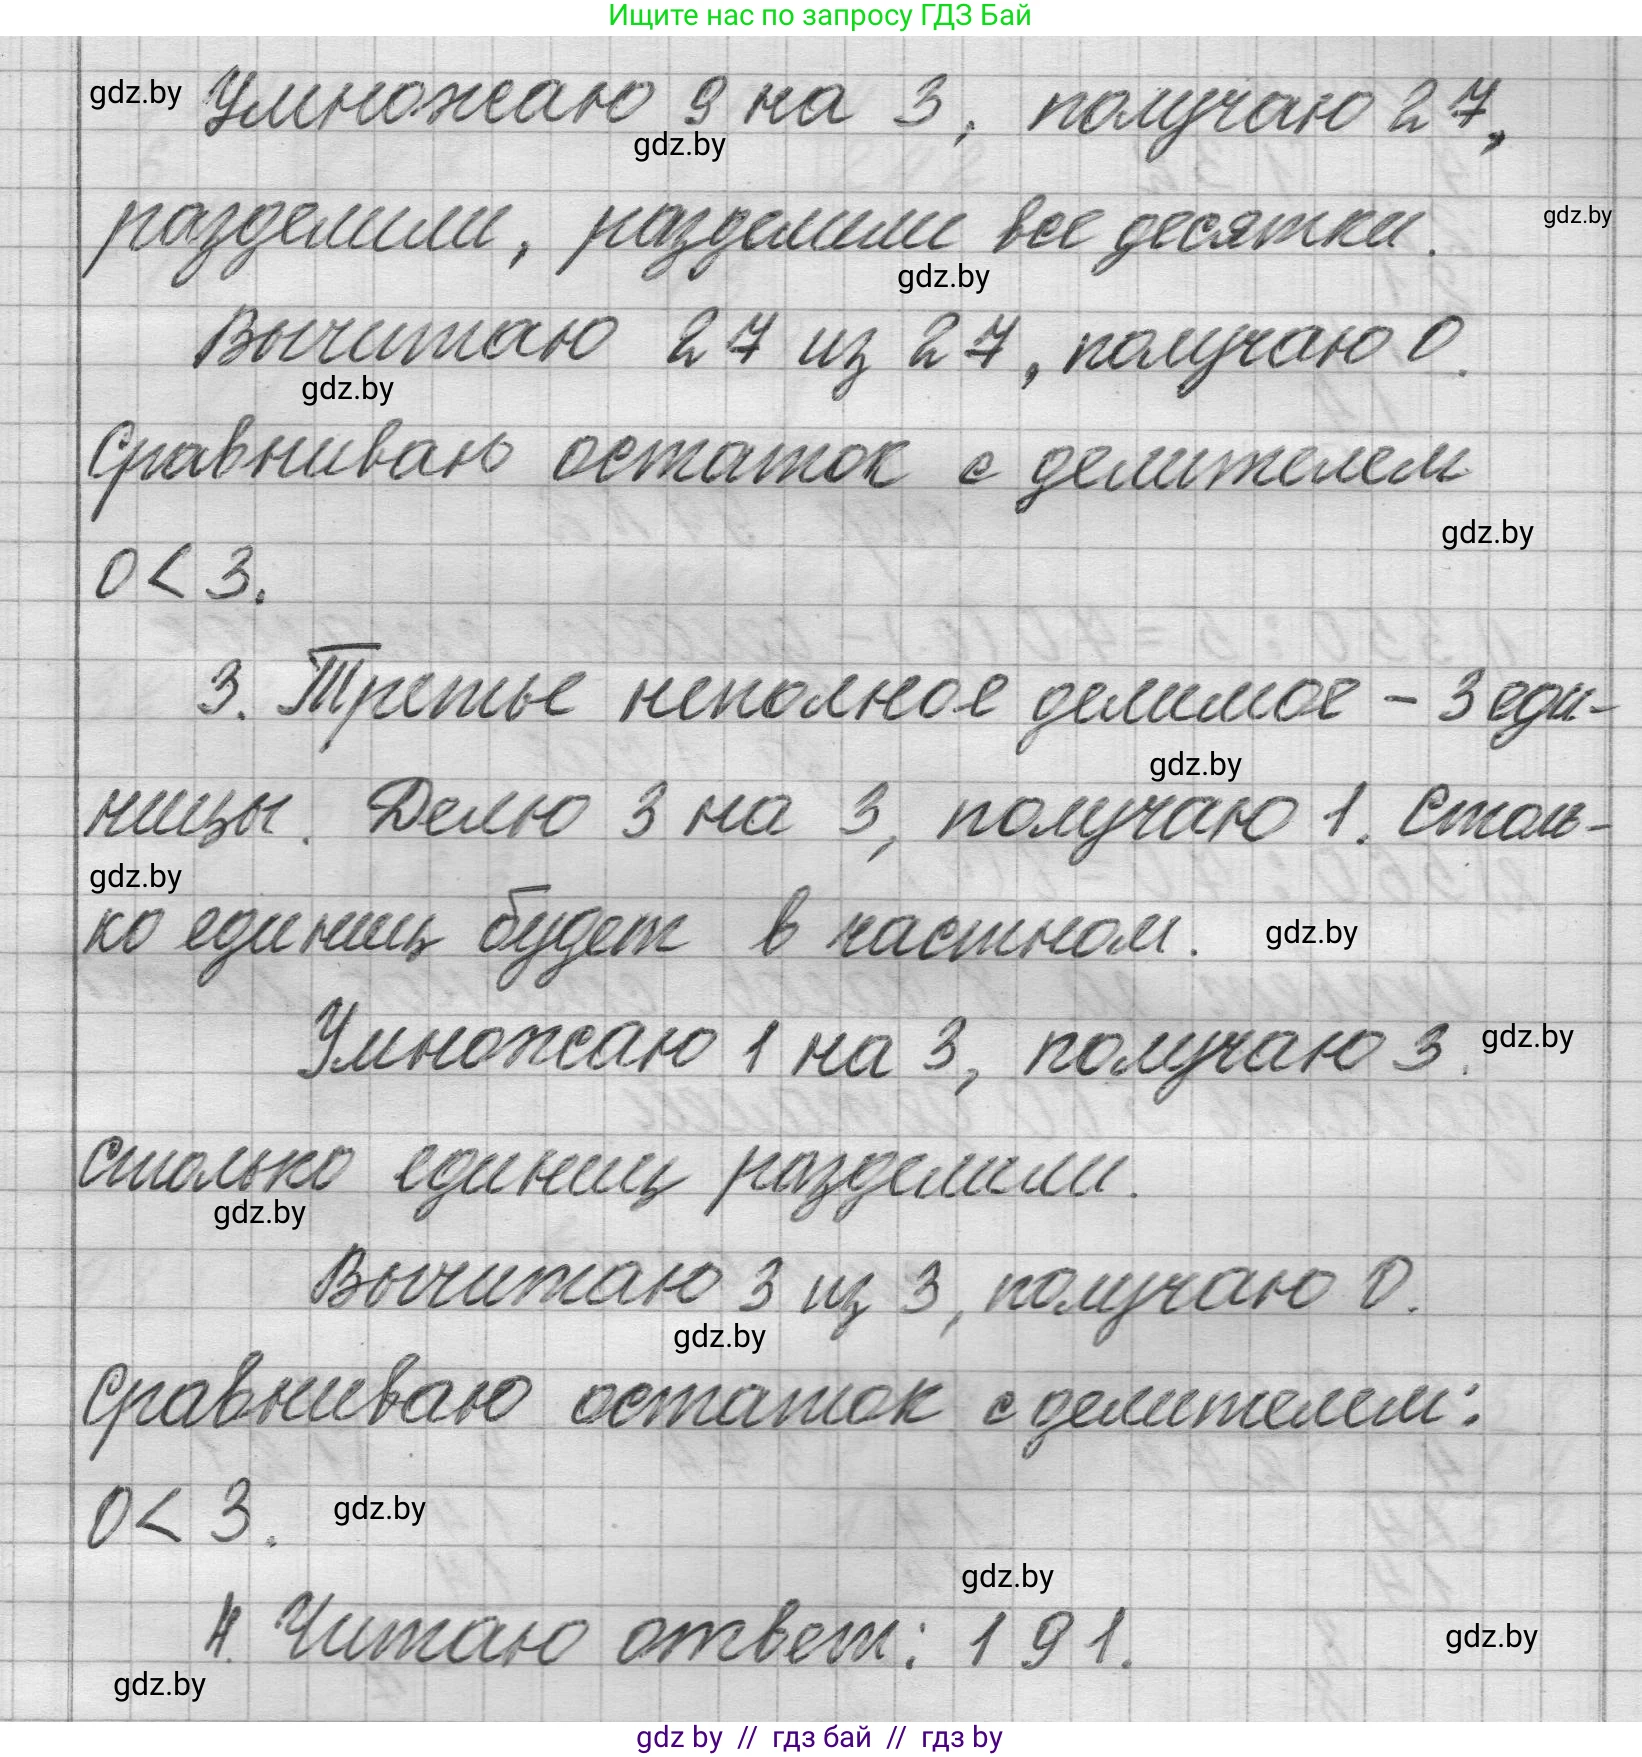 Ищите нас по запросу ГДЗ Бай
gdz.by Умножаю 9 на 3, получаю 27,
gdz.by
разделили, разделили все десятки. gdz.by
gdz.by
Вычитаю 27 из 27, получаю 0.
gdz.by
Сравниваю остаток с делителем
gdz.by
0 < 3.
3. Третье неполное делимое – 3 еди-
gdz.by
ницы. Делю 3 на 3, получаю 1. Столь-
gdz.by
ко единиц будет в частном. gdz.by
Умножаю 1 на 3, получаю 3. gdz.by
столько единиц разделили.
gdz.by
Вычитаю 3 из 3, получаю 0.
gdz.by
Сравниваю остаток с делителем:
0 < 3. gdz.by
gdz.by
4. Читаю ответ: 191. gdz.by
gdz.by
gdz by // гдз бай // гдз by